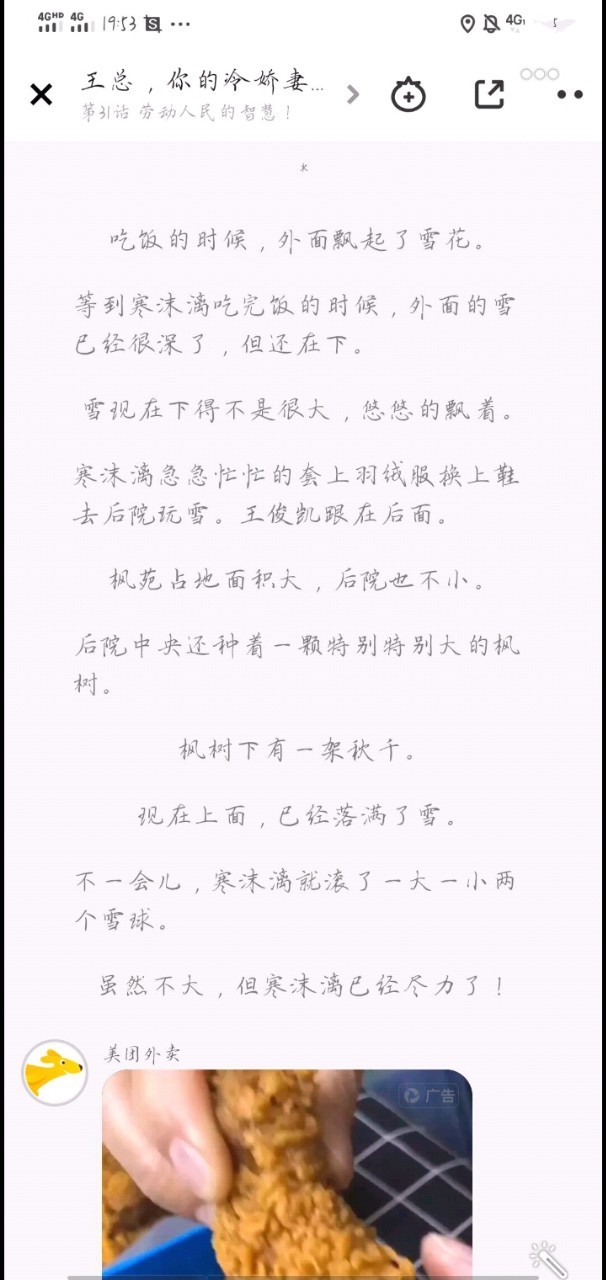 4GHD 4G 19:53 S ··· 4G
王总，你的冷娇妻...
第31话 劳动人民的智慧！
吃饭的时候，外面飘起了雪花。
等到寒沫漓吃完饭的时候，外面的雪
已经很深了，但还在下。
雪现在下得不是很大，悠悠的飘着。
寒沫漓急急忙忙的套上羽绒服换上鞋
去后院玩雪。王俊凯跟在后面。
枫苑占地面积大，后院也不小。
后院中央还种着一颗特别特别大的枫
树。
枫树下有一架秋千。
现在上面，已经落满了雪。
不一会儿，寒沫漓就滚了一大一小两
个雪球。
虽然不大，但寒沫漓已经尽力了！
美团外卖
广告